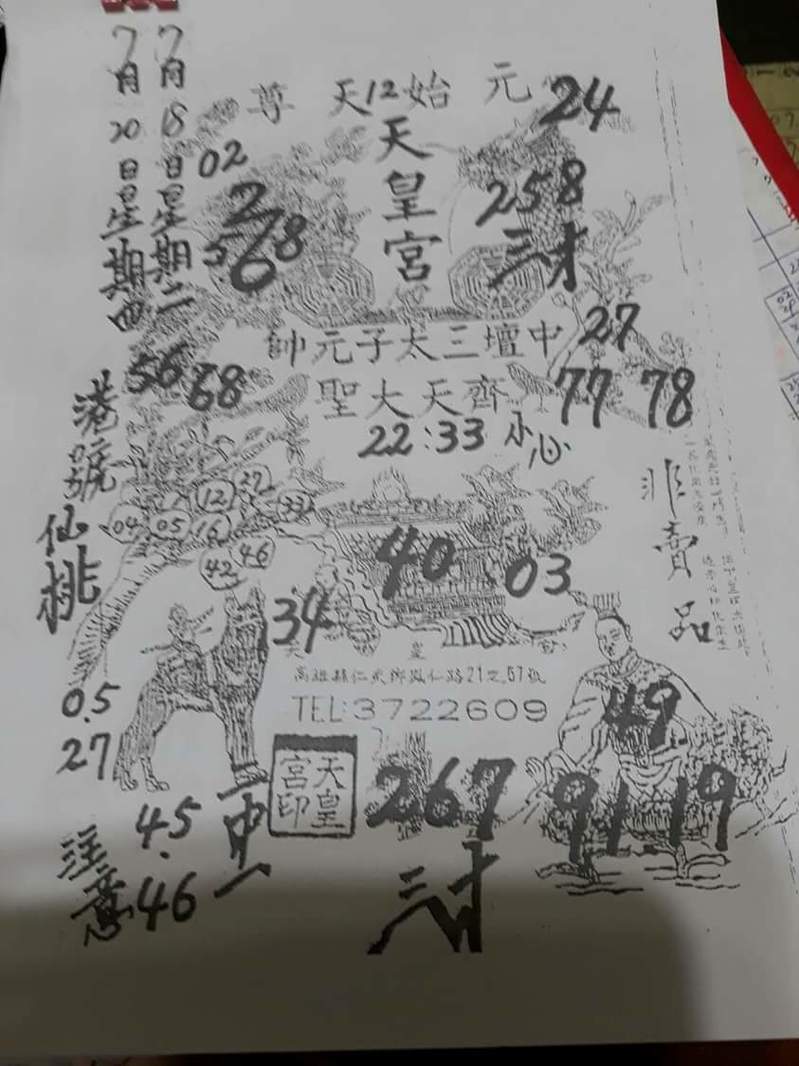 7月18日星期二
7月20日星期四
元始12天尊
24
02
天皇宮
258
三才
2
5 6 8
中壇三太子元帥
27
56 68
齊天大聖
77 78
22:33 小心
港號
仙桃
12 27
04 05 16 33
42 46
40 03
非賣品
34
天皇宮
高雄縣仁武鄉鳳仁路21之57號
TEL:3722609
0.5
27
49
天皇宮印
267
三才
91.19
二中一
注意
45.
46